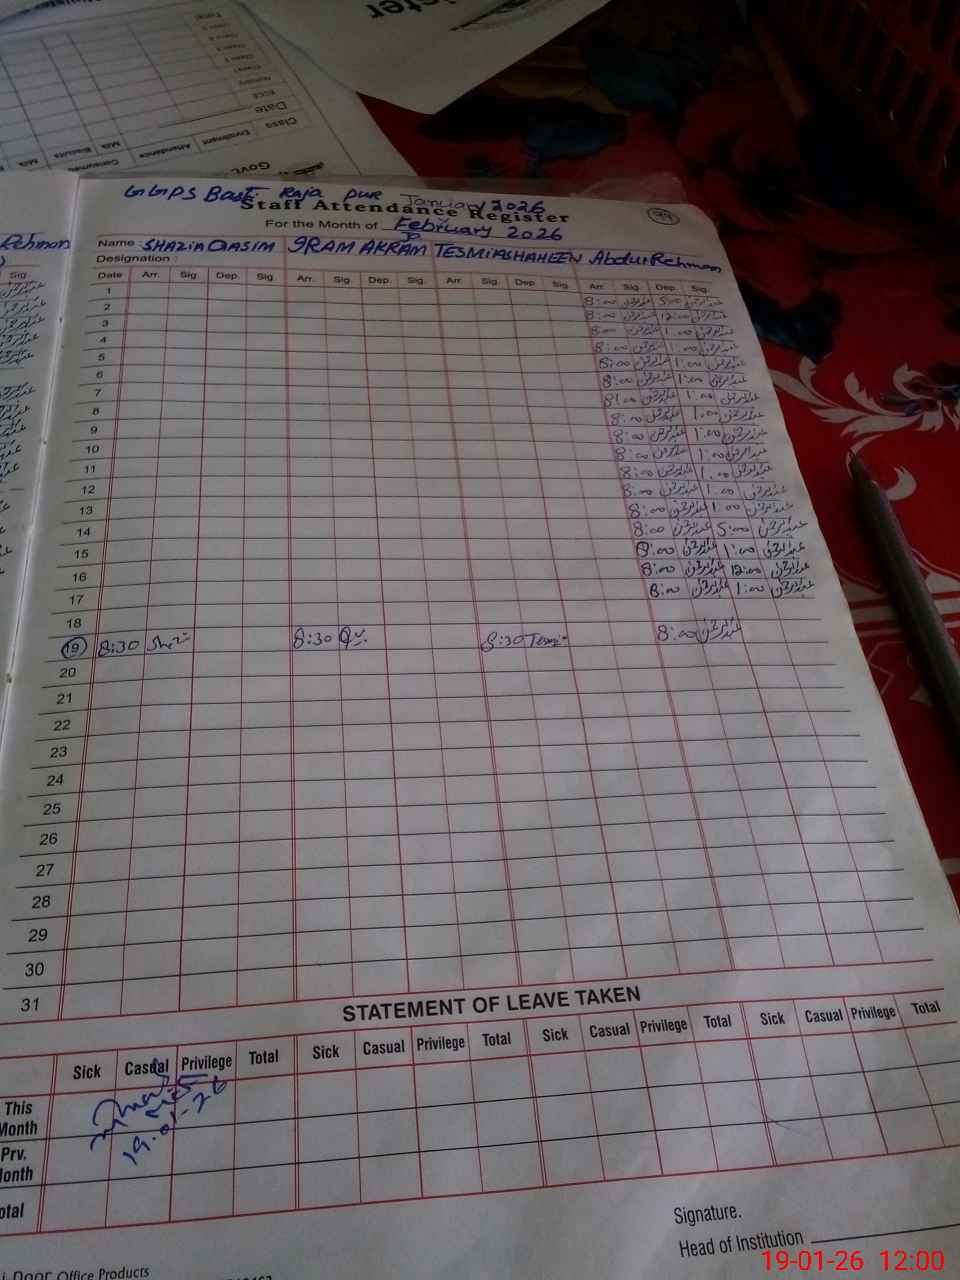 GGPS Basti Raja Pur January 2026
Staff Attendance Register
For the Month of February 2026
94
Name SHAZIA QASIM IRAM AKRAM TESMIA SHAHEEN Abdul Rehman
Designation :
Date Arr. Sig. Dep. Sig. Arr. Sig. Dep. Sig. Arr. Sig. Dep. Sig. Arr. Sig. Dep. Sig.
1 8:00 عبدالرحمٰن 5:00 عبدالرحمٰن
2 8:00 عبدالرحمٰن 12:00 عبدالرحمٰن
3 8:00 عبدالرحمٰن 1:00 عبدالرحمٰن
4 8:00 عبدالرحمٰن 1:00 عبدالرحمٰن
5 8:00 عبدالرحمٰن 1:00 عبدالرحمٰن
6 8:00 عبدالرحمٰن 1:00 عبدالرحمٰن
7 8:00 عبدالرحمٰن 1:00 عبدالرحمٰن
8 8:00 عبدالرحمٰن 1:00 عبدالرحمٰن
9 8:00 عبدالرحمٰن 1:00 عبدالرحمٰن
10 8:00 عبدالرحمٰن 1:00 عبدالرحمٰن
11 8:00 عبدالرحمٰن 1:00 عبدالرحمٰن
12 8:00 عبدالرحمٰن 1:00 عبدالرحمٰن
13 8:00 عبدالرحمٰن 1:00 عبدالرحمٰن
14 8:00 عبدالرحمٰن 5:00 عبدالرحمٰن
15 8:00 عبدالرحمٰن 1:00 عبدالرحمٰن
16 8:00 عبدالرحمٰن 12:00 عبدالرحمٰن
17 8:00 عبدالرحمٰن 1:00 عبدالرحمٰن
18
19 8:30 8:30 8:30 8:00 عبدالرحمٰن
20
21
22
23
24
25
26
27
28
29
30
31
STATEMENT OF LEAVE TAKEN
Sick Casual Privilege Total Sick Casual Privilege Total Sick Casual Privilege Total Sick Casual Privilege Total
This Month
19-01-26
Prv. Month
Total
Signature.
Head of Institution
Office Products
19-01-26 12:00